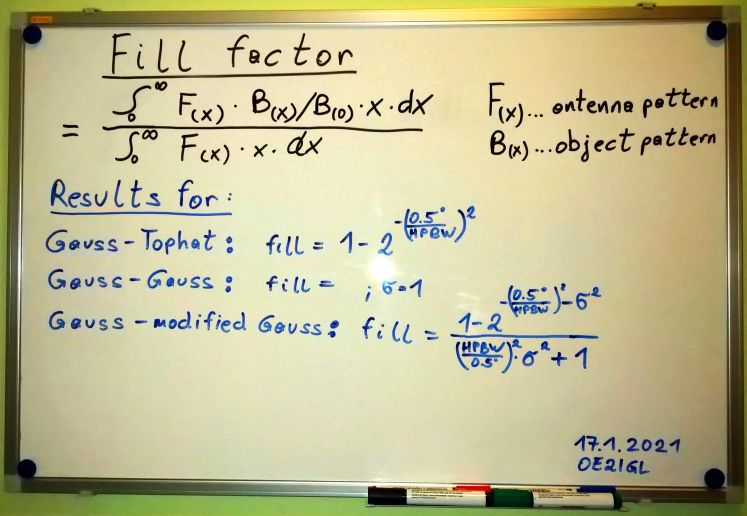 Fill factor
= ∫₀^∞ F(x) · B(x)/B(0) · x · dx / ∫₀^∞ F(x) · x · dx
F(x)... antenna pattern
B(x)...object pattern
Results for:
Gauss-Tophat: fill = 1-2^-(0.5°/HPBW)²
Gauss-Gauss: fill = ; σ=1
Gauss-modified Gauss: fill = 1-2^-(0.5°/HPBW)²-σ² / (HPBW/0.5°)²·σ²+1
17.1.2021
OE2IGL